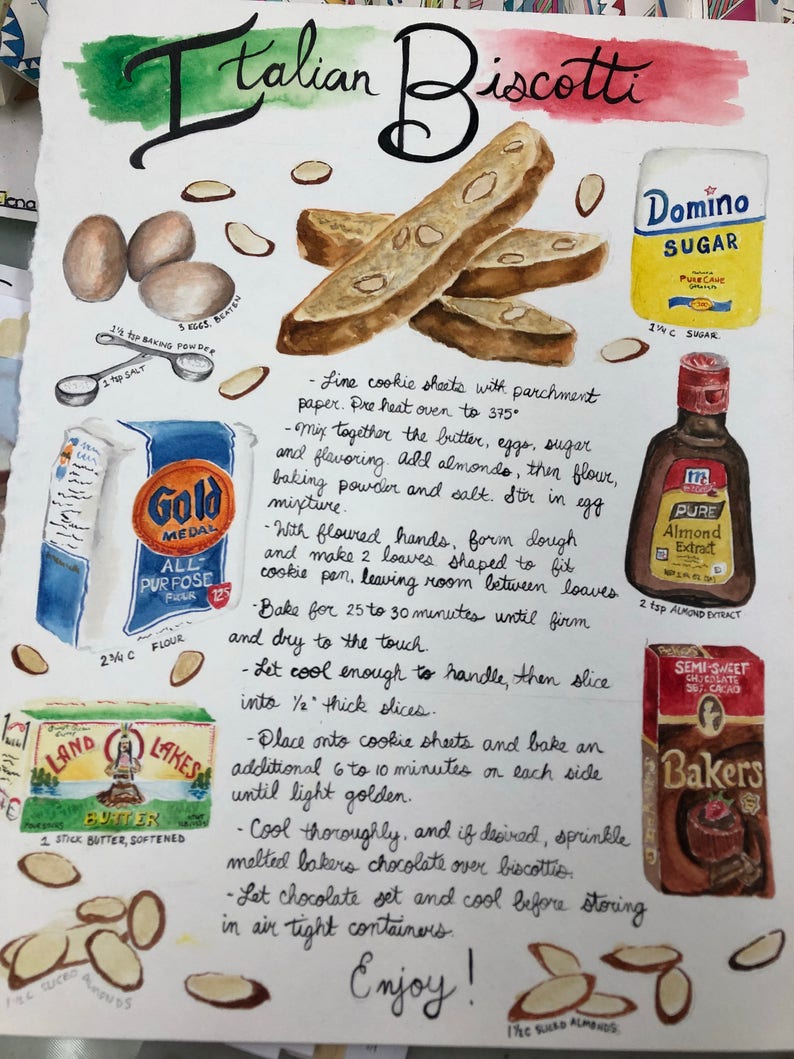 Italian Biscotti
Domino
SUGAR
PURE CANE
1 1/4 C SUGAR
3 EGGS, BEATEN
1 1/2 tsp BAKING POWDER
1 tsp SALT
- Line cookie sheets with parchment
paper. Pre heat oven to 375°
- Mix together the butter, eggs, sugar
and flavoring. Add almonds, then flour,
baking powder and salt. Stir in egg
mixture.
- With floured hands, form dough
and make 2 loaves shaped to fit
cookie pan, leaving room between loaves
- Bake for 25 to 30 minutes until firm
and dry to the touch.
- Let cool enough to handle, then slice
into 1/2" thick slices.
- Place onto cookie sheets and bake an
additional 6 to 10 minutes on each side
until light golden.
- Cool thoroughly, and if desired, sprinkle
melted bakers chocolate over biscottis.
- Let chocolate set and cool before storing
in air tight containers.
Enjoy!
Gold
MEDAL
ALL-
PURPOSE
FLOUR
125
2 3/4 C FLOUR
PURE
Almond
Extract
2 tsp ALMOND EXTRACT
LAND LAKES
BUTTER
FOUR STICKS
1 STICK BUTTER, SOFTENED
SEMI-SWEET
CHOCOLATE
56% CACAO
Bakers
1 1/2 C SLICED ALMONDS
1 1/2 C SLICED ALMONDS